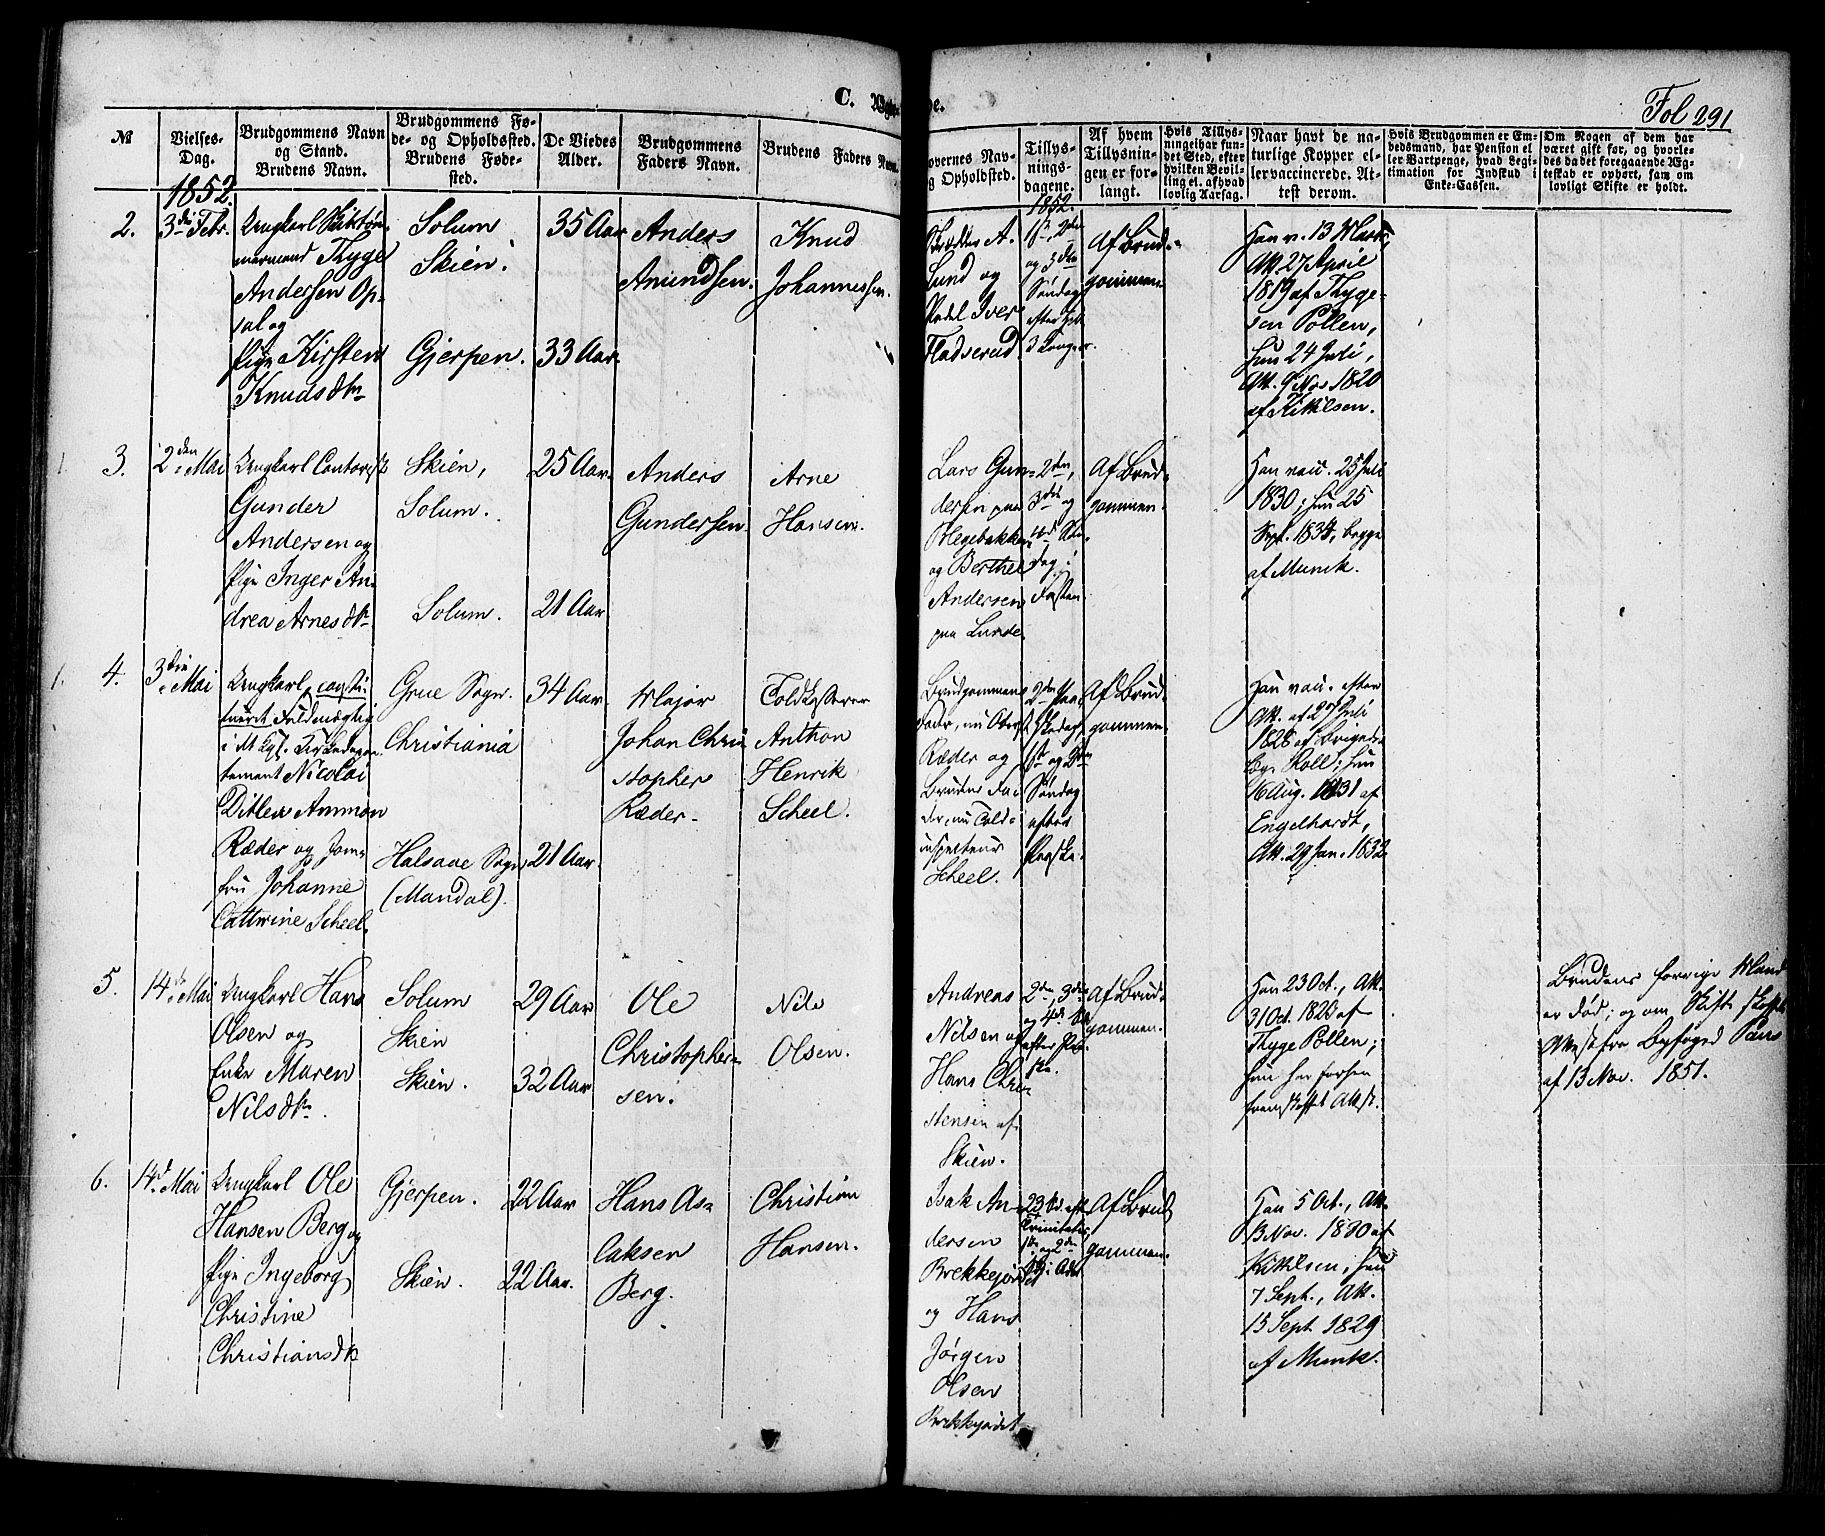 C. Vigede.
Fol 291
№
Vielses-Dag.
Brudgommens Navn og Stand. Brudens Navn.
Brudgommens Føde- og Opholdssted. Brudens Fødested.
De Viedes Alder.
Brudgommens Faders Navn.
Brudens Faders Navn.
overnes Navn og Opholdsted.
Tillysningsdagene.
Af hvem Tillysningen er forlangt.
Hvis Tillysningel har fundet Sted, efter hvilken Bevilling el. afhvad lovlig Aarsag.
Naar havt de naturlige Kopper eller vaccinerede. Attest derom.
Hvis Brudgommen er Embedsmand, har Pension el ler Vartpenge, hvad Legitimation for Indskud i Enke-Cassen.
Om Nogen af dem har været gift før, og hvorledes da det foregaaende Ægteskab er ophørt, sam om lovligt Skifte er holdt.
1852.
1852.
2.
3die Febr.
Ungkarl
mermand Thyge
Andersen Op-
sal og
Pige Kirsten
Knudsdtr
Solum
Skien.
Gjerpen.
35 Aar
33 Aar
Anders
Amundsen.
Knud
Johannessen.
A.
Lund og
Iver
Fladserud
1ste, 2den
og 3die
Søndag
efter Hel.
3 Konger.
Af Brud-
gommen
Han v. 13 Marts,
Att. 27 April
1819 af Thyge-
sen Pollen,
hun 24 Juli,
Att. 9 Nov 1820
af Kittilsen.
3.
2den Mai
Ungkarl Contorist
Gunder
Andersen og
Pige Inger An-
drea Arnesdtr
Skien,
Solum.
Solum.
25 Aar
21 Aar
Anders
Gundersen
Arne
Hansen.
Lars Gun-
dersen paa
og Berthel
Andersen
paa Lunde
2den,
3die og
4de Søn-
dag i
Fasten.
Af Brud-
gommen.
Han vacc. 25 Juli
1830; hun 25
Sept. 1834, begge
af Munk.
4.
3die Mai
Ungkarl, consti-
tueret Fuldmægtig
i
tement Nicolai
Ditlev Ammon
Ræder og Jom-
fru Johanne
Cathrine Scheel.
Grue Sogn.
Christiania
Halsaae Sogn
(Mandal).
34 Aar
21 Aar
Major
Johan Chri-
stopher
Ræder.
Toldkasserer
Anthon
Henrik
Scheel.
Brudgommens
Fader, nu Oberst
Ræder og
Brudens Fa-
der, nu Told-
inspecteur
Scheel.
2den Paa-
skedag,
1ste og 2den
Søndag
efter
Paaske.
Af Brud-
gommen
Han vacc. efter
Att. af 2 Juli
1828 af Brigade-
læge Roll; hun
16 Aug. 1831 af
Engelhardt,
Att. 29 Jan. 1832
5.
14de Mai
Ungkarl Hans
Olsen og
Enke Maren
Nilsdtr.
Solum
Skien
Skien.
29 Aar
32 Aar
Ole
Christopher-
sen.
Nils
Olsen.
Andreas
Nilsen og
Hans Chri-
stensen af
Skien.
2den, 3die
og 4de Sd.
efter Paa-
ske.
Af Brud-
gommen.
Han 23 Oct., Att.
31 Oct. 1823 af
Thyge Pollen;
hun har forhen
fremskaffet Attest.
Brudens forrige Mand
er død; og om Skifte skaffet
Attest fra Byfoged Paus
af 13 Nov. 1851.
6.
14de Mai
Ungkarl Ole
Hansen Berg og
Pige Ingeborg
Christine
Christiansdtr
Gjerpen.
Skien.
22 Aar
22 Aar.
Hans As-
laksen
Berg.
Christian
Hansen.
Isak An-
dersen
Brekkejor-
det
og Hans
Jørgen
Olsen
Brekkejordet
23 Sd. eft.
Trinitatis,
1ste og 2den
Sd. i Advt
Af Brud
gommen.
Han 5 Oct., Att.
13 Nov. 1830 af
Kittilsen; hun
7 Sept., Att.
15 Sept 1829
af Munk.